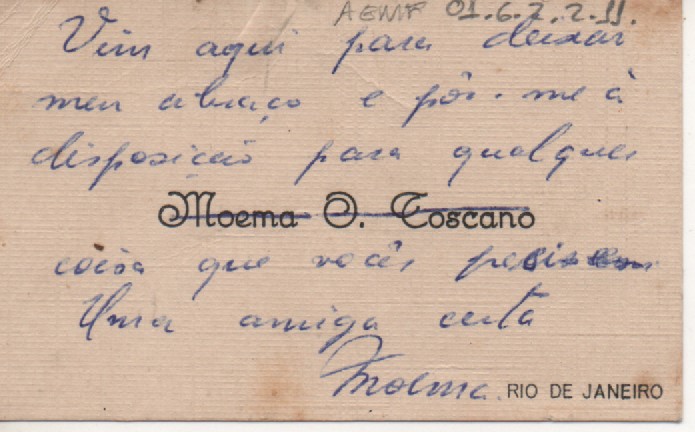 AEMF 01.6.2.2.11.
Vim aqui para deixar
meu abraço e pôr-me à
disposição para qualquer
Moema O. Toscano
coisa que vocês precisem
Uma amiga certa
Moema.
RIO DE JANEIRO